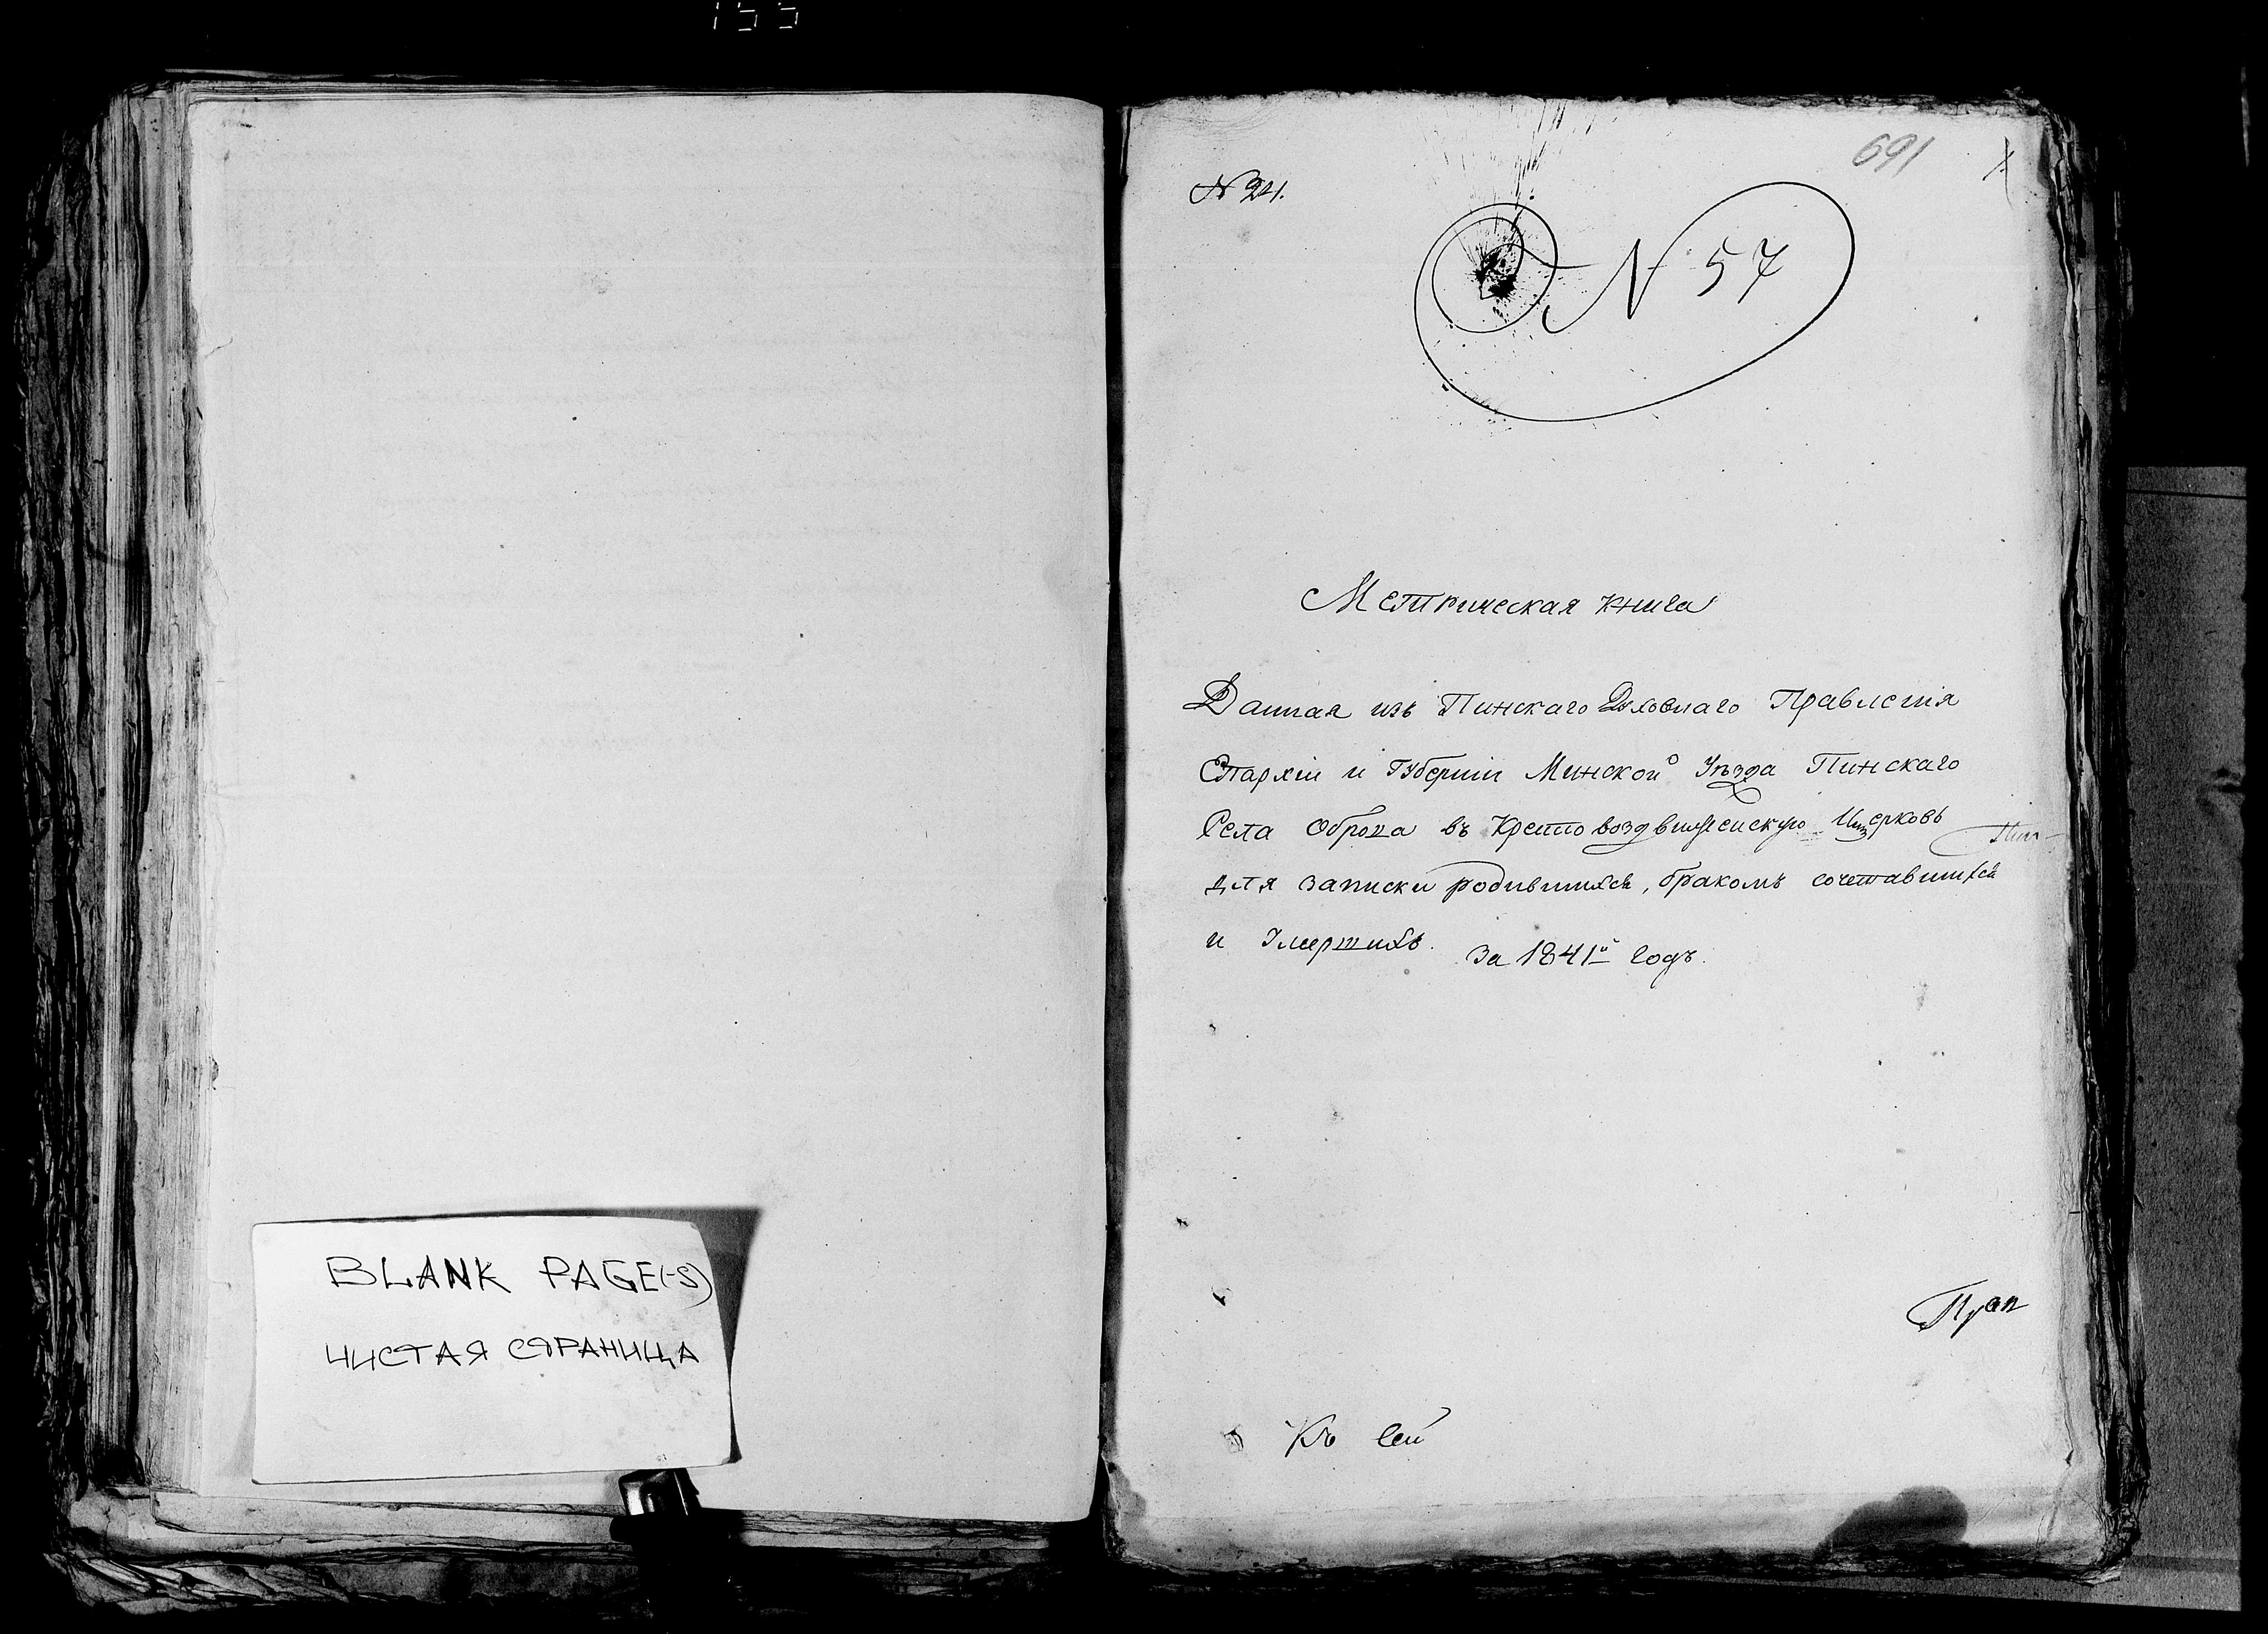 155
BLANK PAGE(-S)
ЧИСТАЯ СТРАНИЦА
691
N 57
Метрическая книга
Данная изъ Пинскаго Духовнаго Правленія
Епархіи и Губерніи Минской Уѣзда Пинскаго
Села Оброва въ Кресто воздвиженскую Церковь
для записки родившихся, бракомъ сочетавшихся
и Умершихъ. За 1841й годъ.
Къ сей